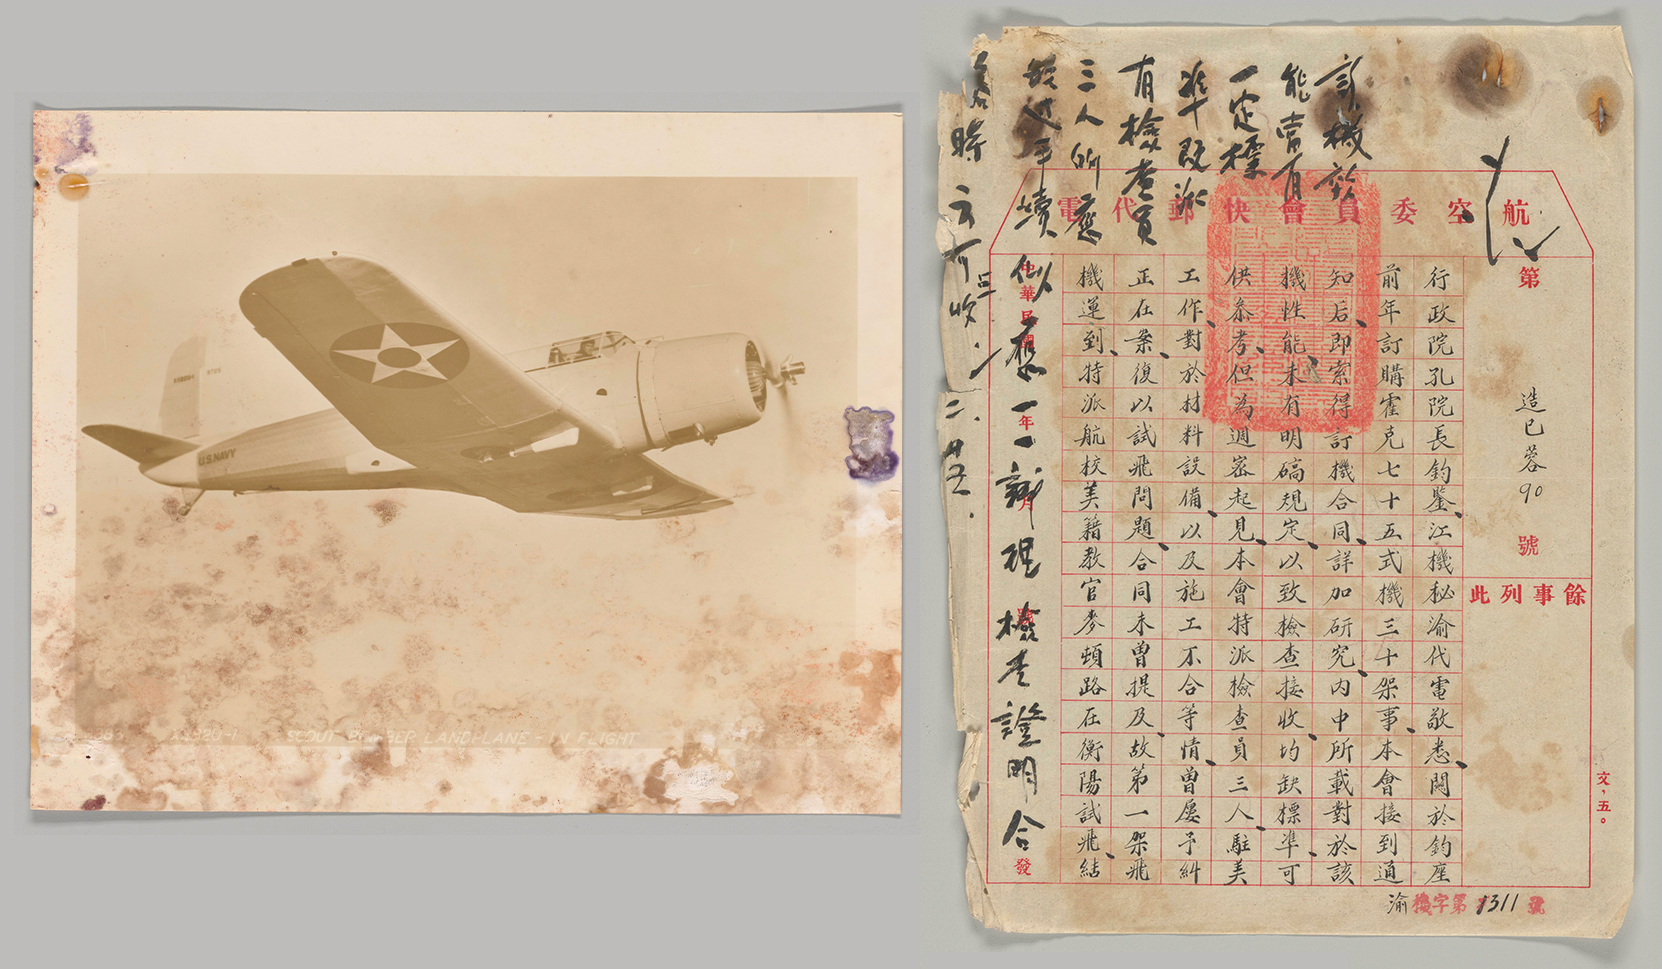 U.S.NAVY
SCOUT BOMBER LANDPLANE - IN FLIGHT
航空委員會快郵代電
第
造已蓉90
號
餘事列此
行政院孔院長鈞鑒、江機秘渝代電敬悉、関於鈞座
前年訂購霍克七十五式機三十架事、本會接到通
知后、即索得訂機合同、詳加研究、内中所載對於該
機性能未有明碻規定、以致檢查接收均缺標準、可
供参考、但為週密起見、本會特派檢查員三人、駐美
工作、對於材料設備、以及施工不合等情、曾屢予糾
正在案、復以試飛問題、合同未曾提及、故第一架飛
機運到、特派航校美籍教官麥頓路在衡陽試飛、結
中華民國 年 月 號 發
該機效
能當有
一定標
準既派
有檢查員
三人則應
手續
似應一
視檢查證明合
文,五。
渝機字第1311號